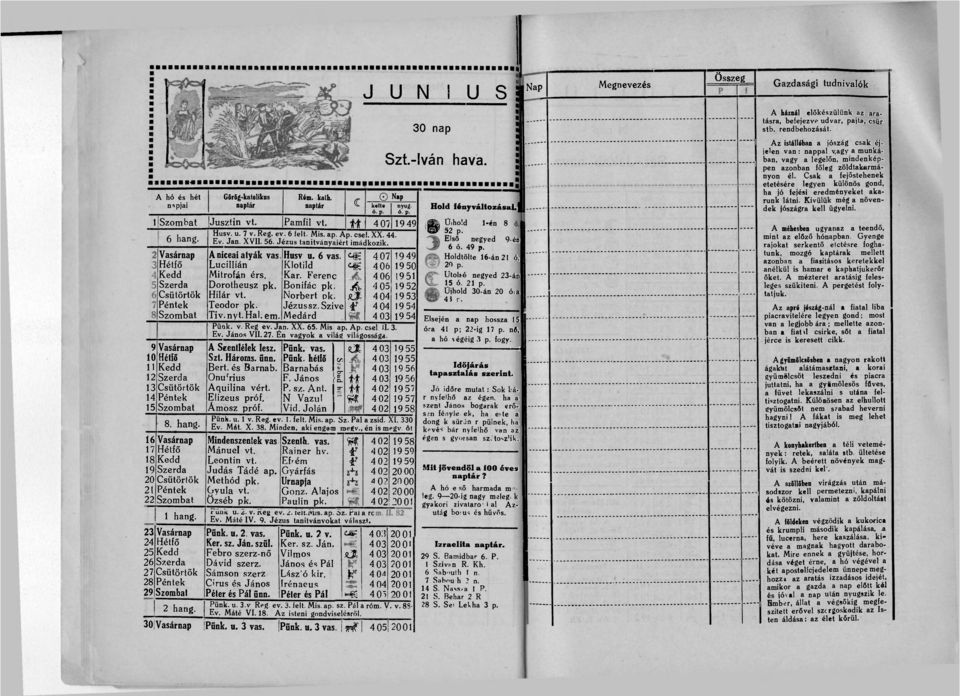 JUNIUS
30 nap
Szt.-Iván hava.
A hó és hét napjai | Görög-katolikus naptár | Róm. kath. naptár | ☾ | ☉ Nap kelte ó. p. | nyug. ó. p.
1 Szombat Jusztin vt. Pamfil vt. 4 07 19 49
6 hang. Husv. u. 7 v. Reg. ev. 6 felt. Mis. ap. Ap. csel. XX. 44.
Ev. Jan. XVII. 56. Jézus tanitványaiért imádkozik.
2 Vasárnap A niceai atyák vas. Husv u. 6 vas. 4 07 19 49
3 Hétfő Lucillián Klotild 4 06 19 50
4 Kedd Mitrofán érs. Kar. Ferenc 4 06 19 51
5 Szerda Dorotheusz pk. Bonifác pk. 4 05 19 52
6 Csütörtök Hilár vt. Norbert pk. 4 04 19 53
7 Péntek Teodor pk. Jézus sz. Szive 4 04 19 54
8 Szombat Tiv. nyt. Hal. em. Medárd 4 03 19 54
Pünk. v. Reg ev. Jan. XX. 65. Mis ap. Ap. csel II. 3.
Ev. János VII. 27. Én vagyok a világ világossága.
9 Vasárnap A Szentlélek lesz. Pünk. vas. 4 03 19 55
10 Hétfő Szt. Hároms. ünn. Pünk. hétfő 4 03 19 55
11 Kedd Bert. és Barnab. Barnabás 4 03 19 56
12 Szerda Onufrius F. János 4 03 19 56
13 Csütörtök Aquilina vért. P. sz. Ant. 4 02 19 57
14 Péntek Elizeus próf. N Vazul 4 02 19 57
15 Szombat Ámosz próf. Vid. Jolán 4 02 19 58
8. hang. Pünk u. 1 v. Reg. ev. 1. felt. Mis. ap. Sz. Pál a zsid. XI. 330
Ev. Mát. X. 38. Minden, aki engem megv., én is megv. őt
16 Vasárnap Mindenszentek vas Szenth. vas. 4 02 19 58
17 Hétfő Mánuel vt. Rainer hv. 4 02 19 59
18 Kedd Leontin vt. Efrém 4 02 19 59
19 Szerda Judás Tádé ap. Gyárfás 4 02 20 00
20 Csütörtök Methód pk. Urnapja 4 02 20 00
21 Péntek Gyula vt. Gonz. Alajos 4 02 20 00
22 Szombat Özséb pk. Paulin pk. 4 02 20 01
1 hang. Pünk u. 2. v. Reg ev. 2. felt. Mis. ap. Sz. Pál a róm. II. 82
Ev. Máté IV. 9. Jézus tanitványokat választ.
23 Vasárnap Pünk. u. 2. vas. Pünk. u. 2 v. 4 03 20 01
24 Hétfő Ker. sz. Ján. szül. Ker. sz. Ján. 4 03 20 01
25 Kedd Febro szerz-nő Vilmos 4 03 20 01
26 Szerda Dávid szerz. János és Pál 4 03 20 01
27 Csütörtök Sámson szerz László kir. 4 04 20 01
28 Péntek Cirus és János Irénaeus 4 04 20 01
29 Szombat Péter és Pál ünn. Péter és Pál 4 05 20 01
2 hang. Pünk. u. 3. v Reg ev. 3. felt. Mis. ap. sz. Pál a róm. V. v. 88
Ev. Máté VI. 18. Az isteni gondviselésről.
30 Vasárnap Pünk. u. 3 vas. Pünk. u. 3 vas. 4 05 20 01
Hold fényváltozásai.
Újhold 1-én 8 ó.
52 p.
Első negyed 9-én
6 ó. 49 p.
Holdtölte 16-án 21 ó.
20 p.
Utolsó negyed 23-án
15 ó. 21 p.
Újhold 30-án 20 ó.
Elsején a nap hossza 15
óra 41 p; 22-ig 17 p. nő,
a hó végéig 3 p. fogy.
Időjárás
tapasztalás szerint.
Jó időre mutat: Sok
nyfelhő az égen, ha a
szent János bogarak
fényle ek, ha este a
dong k sürün r pülnek, ha
kevés bár nyfelhő van az
égen s gyorsan
Mit jövendöl a 100 éves
naptár?
A hó e ső harmada
leg. 9—20-ig nagy meleg
gyakori zivatarokkal Az-
után borus és hüvös.
Izraelita naptár.
29 S. Bamidbar 6. P.
1 Szivan R. Kh.
6 Sabouth 1 n.
7 Sabouth 2 n.
14 S. Nassza 1 P.
21 S. Behar 2 R
28 S. Lekha 3 p.
Nap | Megnevezés | Összeg P f | Gazdasági tudnivalók
A háznál előkészülünk az ara-
tásra, befejezve udvar, pajta, csür
stb. rendbehozását.
Az istállóban a jószág csak éj-
jelen van: nappal vagy a munká-
ban, vagy a legelőn, mindenkép-
pen azonban főleg zöldtakarmá-
nyon él. Csak a fejőstehenek
etetésére legyen különös gond,
ha jó fejési eredményeket aka-
runk látni. Kivülük még a növen-
dék jószágra kell ügyelni.
A méhesben ugyanaz a teendő,
mint az előző hónapban. Gyenge
rajokat serkentő etetésre foghа-
tunk, mozgó kaptárak mellett
azonban a fiasításos keretekkel
anélkül is hamar e kaphatjukerőr
őket. A mézteret aratásig feles-
leges szükíteni. A pergetést foly-
tatjuk.
Az apró jószág-nál a fiatal liba
piacravitelére legyen gond; most
van a legjobb ára; mellette azon-
ban a fiatal csirke, sőt a fiatal
jérce is keresett cikk.
A gyümölcsösben a nagyon rakott
ágakat alátámasztani, a korai
gyümölcsöt leszedni és piacra
juttatni, ha a gyümölesös füves,
a füvet lekaszálni s utána fel-
tisztogatni. Különösen az elhullott
gyümölcsöt nem szabad heverni
hagyni! A fákat is meg lehet
tisztogatni nagyjából.
A konyhakertben a téli vetemé-
nyek: retek, saláta stb. ültetése
folyik. A beérett növények mag-
vát is szedni kel.
A szőllőben virágzás után má-
sodszor kell permetezni, kapálni
és kötözni, valamint a zöldoltást
elvégezni.
A földeken végződik a kukorica
és krumpli második kapálása, a
fü, lucerna, here kaszálása, ki-
véve a magnak hagyott darabo-
kat. Mire ennek a gyüjtése, hor-
dása véget érne, a hó végével a
két apostolfejedelem ünnepe meg-
hozza az aratás izzadásos idejét,
amikor a gazda a nap előtt kél
és jóval a nap után nyugszik le.
Ember, állat a végsőkig megfe-
szitett erővel szorgoskodik az Is-
ten áldása: az élet körül.